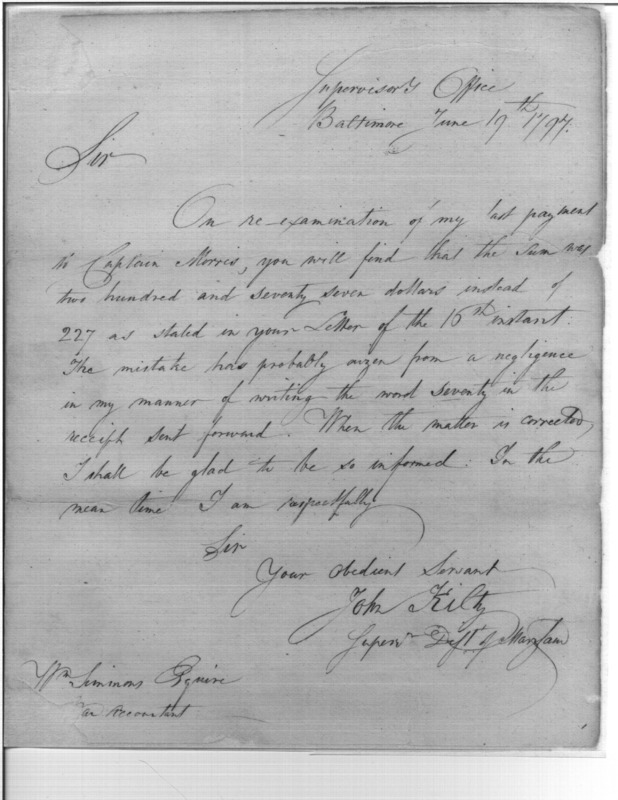 Supervisor's Office
Baltimore June 19th 1797.
Sir
On re-examination of my last payment
to Captain Morris, you will find that the sum was
two hundred and seventy seven dollars instead of
227 as stated in your Letter of the 16th instant.
The mistake has probably arizen from a negligence
in my manner of writing the word seventy in the
receipt sent forward. When the matter is corrected,
I shall be glad to be so informed. In the
mean time I am respectfully
Sir
Your obedient Servant
John Kilty
Superv.r Dist.t of Maryland
Wm Simmons Esquire
War Accountant